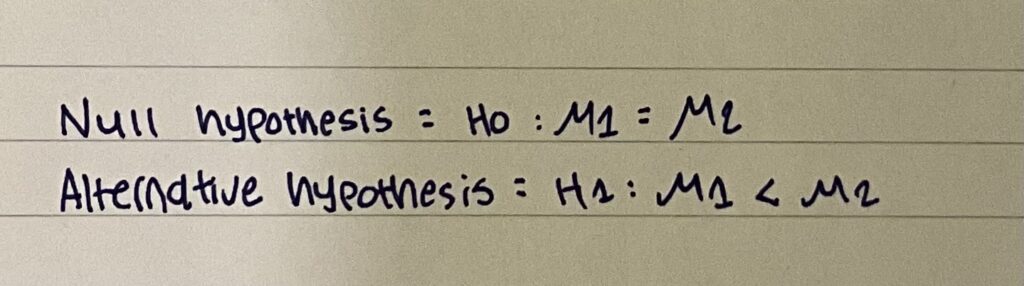 Null hypothesis = H0 : M1 = M2
Alternative hypothesis = H1 : M1 < M2